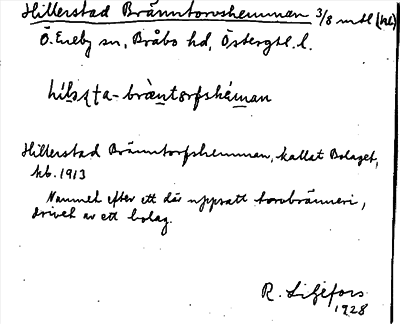 Hillerstad Bränntorvshemman 3/8 mtl (kr)
Ö. Eneby sn, Bråbo hd, Östergtl. l.
Hillerstad Bränntorfshemman, kallat Bolaget,
kb. 1913
Namnet efter ett där uppsatt torvbränneri,
drivet av ett bolag.
R. Liljefors
1928